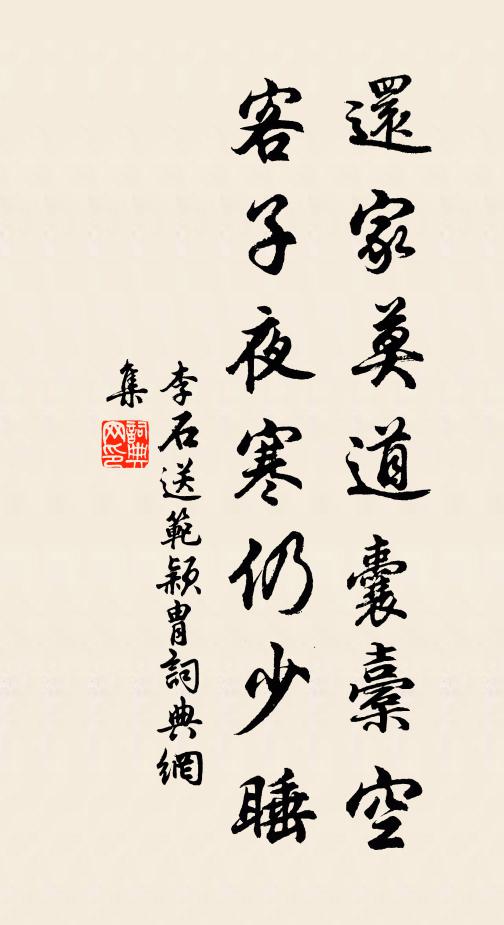 還家莫道囊橐空
客子夜寒仍少睡
李石送範潁胄詞典網
集
詞典
网印